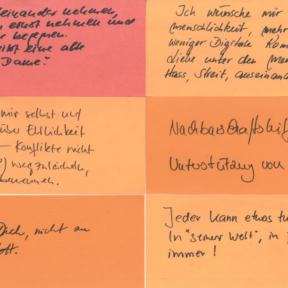 einander nehmen,
ernst nehmen und
begegnen.
eine alte
Dame?
Ich wünsche mir
menschlichkeit, mehr
weniger Digitale Kom
Liebe unter den
Hass, Streit, auseinand
mir selbst und
Ehrlichkeit
Konflikte nicht
wegzulächeln,
Nachbarschaftshilf
Unterstützung von
Dich, nicht an
ott.
Jeder kann etwas tu
In "seiner Welt", in
immer!